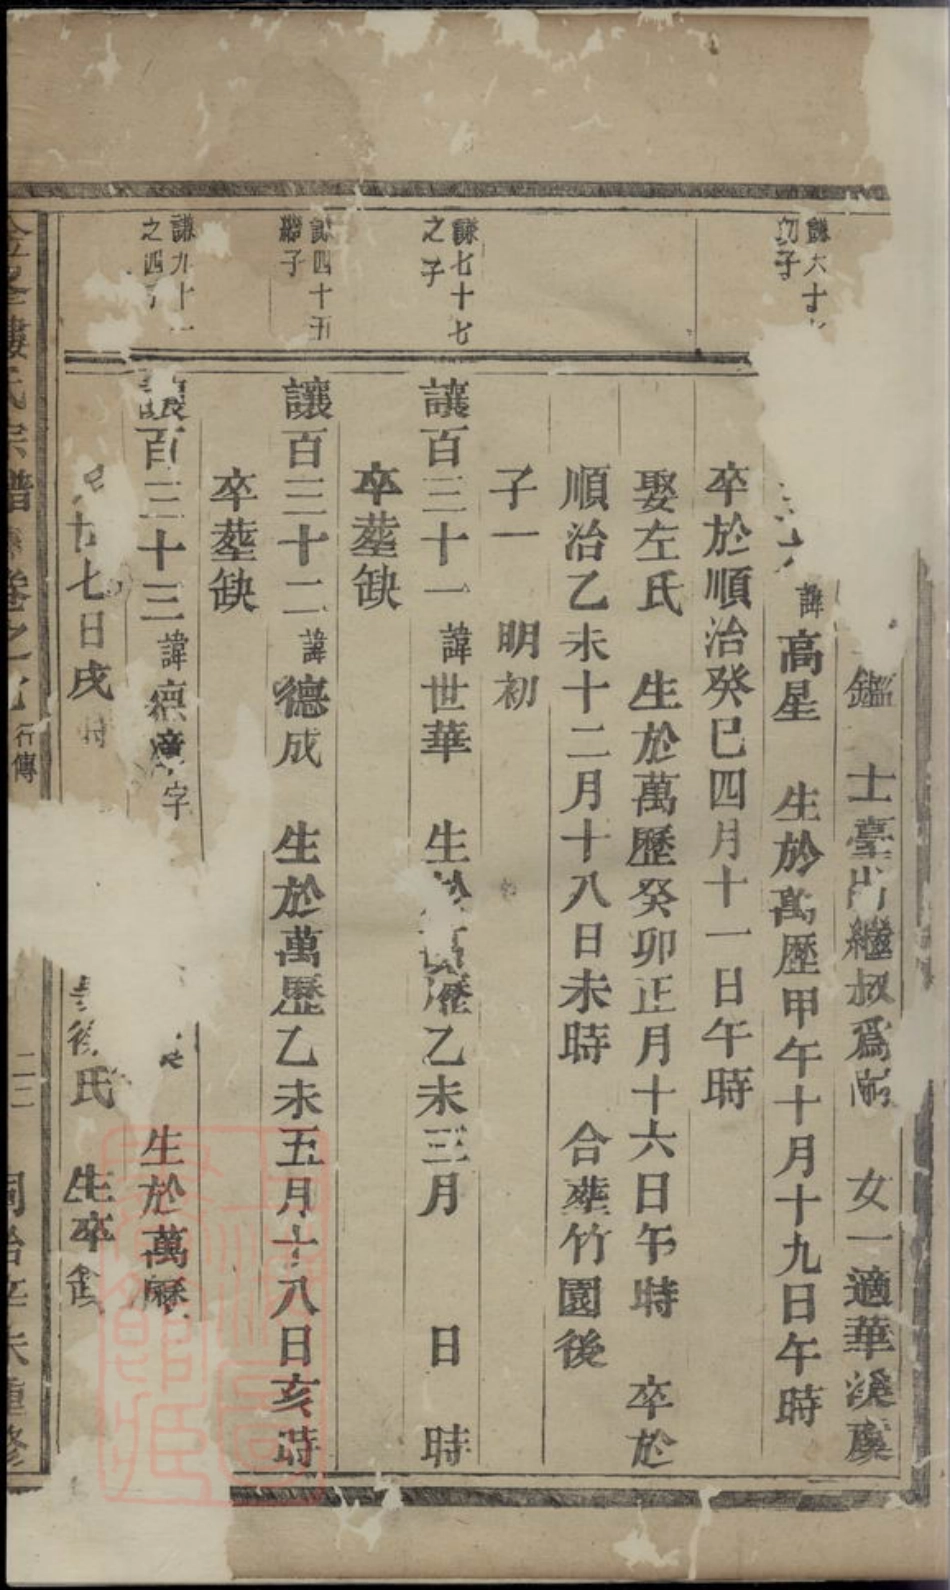 鑑　士臺出繼叔爲嗣　女一適華溪虞
謙六十
幼子
諱高星　生於萬歷甲午十月十九日午時
卒於順治癸巳四月十一日午時
娶左氏　生於萬歷癸卯正月十六日午時　卒於
順治乙未十二月十八日未時　合葬竹園後
子一　明初
謙七十七
之子
讓百三十一諱世華　生於萬歷乙未三月　日　時
卒塟缺
謙四十五
繼子
讓百三十二諱德成　生於萬歷乙未五月十八日亥時
卒塟缺
謙九十一
之四子
讓百三十三諱德　字　生於萬歷
廿七日戌時
氏　生卒
樓氏宗譜　卷之　行傳　二二　同治辛未重修